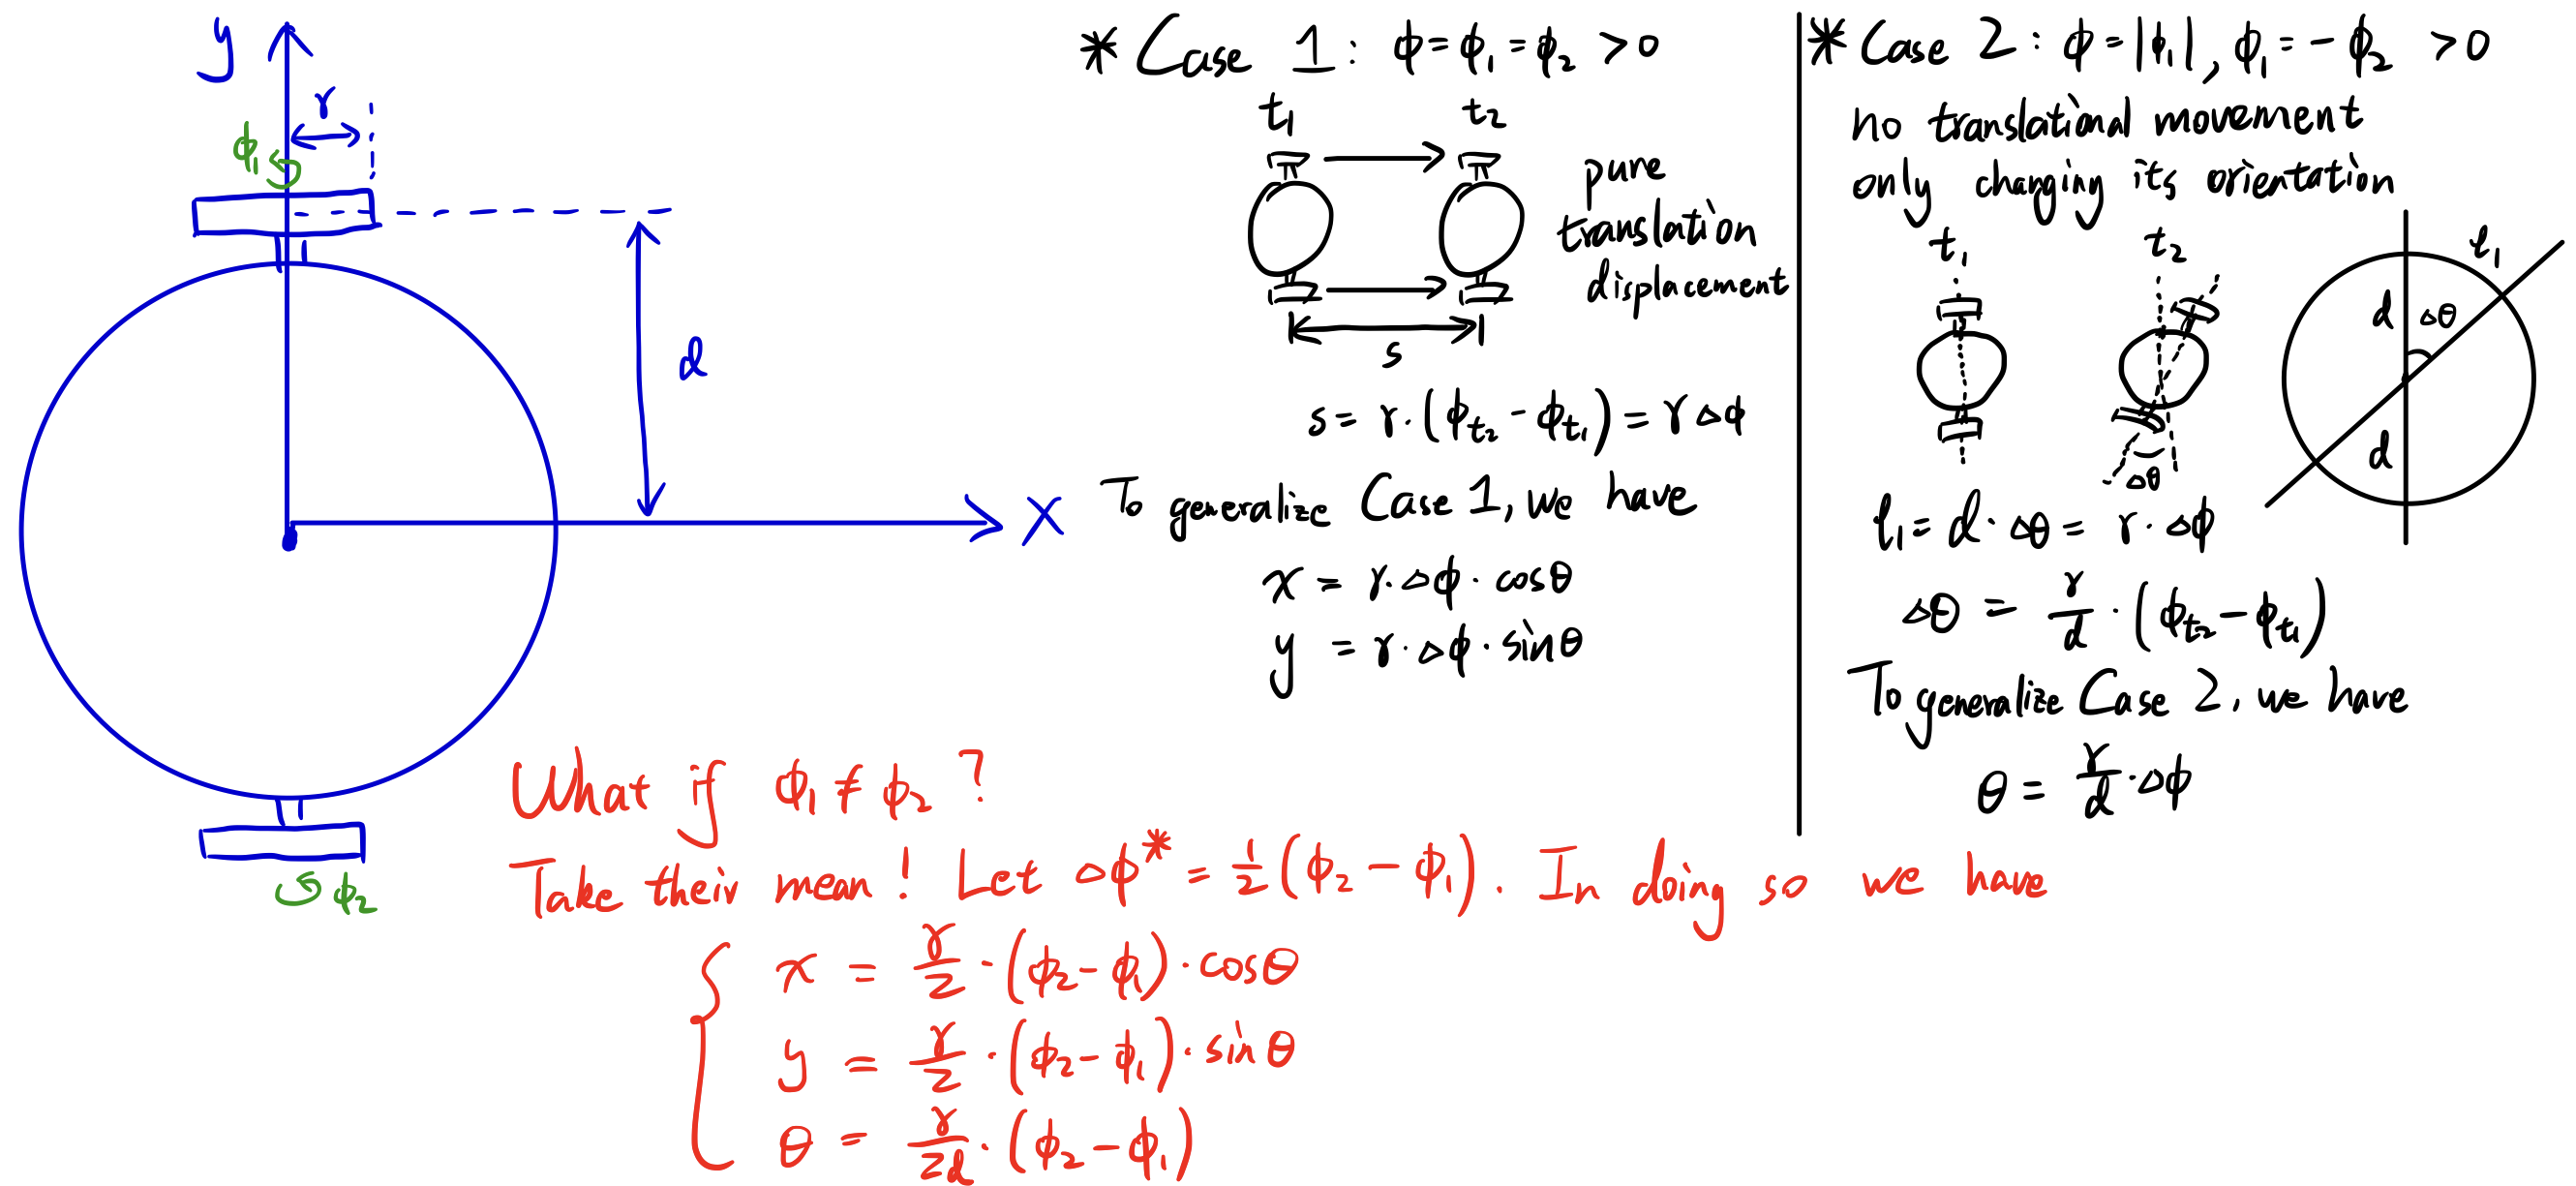 y
r
ϕ₁
d
x
ϕ₂
* Case 1: ϕ = ϕ₁ = ϕ₂ > 0
t₁ t₂
pure
translation
displacement
s
s = r · (ϕ_t₂ - ϕ_t₁) = r Δϕ
To generalize Case 1, we have
x = r · Δϕ · cosθ
y = r · Δϕ · sinθ
* Case 2: ϕ = |ϕ₁|, ϕ₁ = - ϕ₂ > 0
no translational movement
only changing its orientation
t₁ t₂
l₁
d Δθ
d
Δθ
l₁ = d · Δθ = r · Δϕ
Δθ = r/d · (ϕ_t₂ - ϕ_t₁)
To generalize Case 2, we have
θ = r/d · Δϕ
What if ϕ₁ ≠ ϕ₂ ?
Take their mean! Let Δϕ* = 1/2 (ϕ₂ - ϕ₁). In doing so we have
x = r/2 · (ϕ₂ - ϕ₁) · cosθ
y = r/2 · (ϕ₂ - ϕ₁) · sinθ
θ = r/2d · (ϕ₂ - ϕ₁)